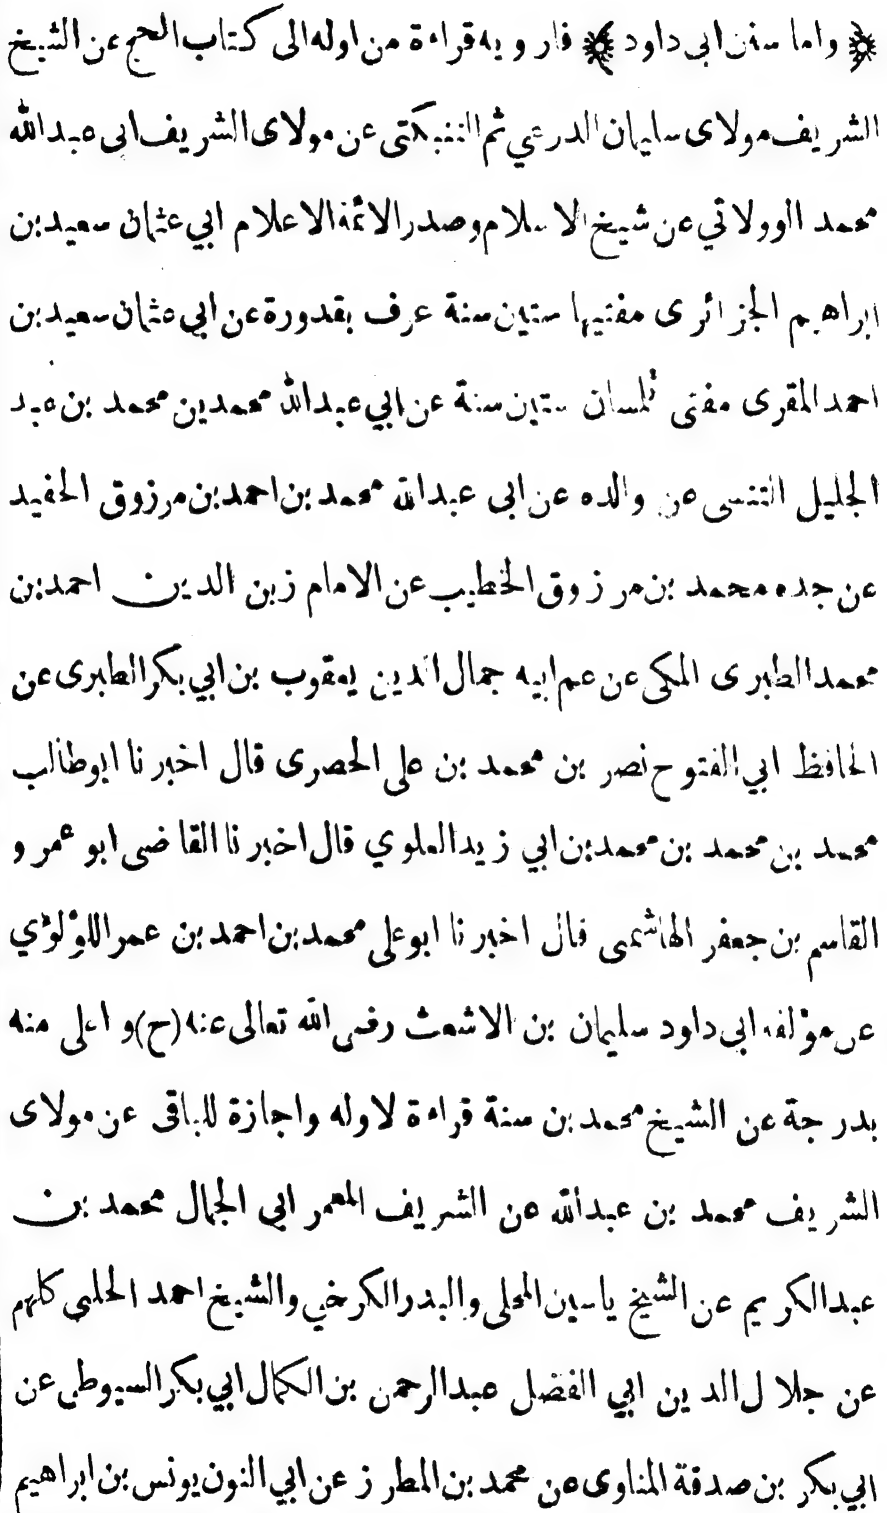 ﴿ واما سنن ابى داود ﴾ فارويه قراءة من اوله الى كتاب الحج عن الشيخ
الشريف مولاى سليمان الدرعي ثم التنبكتى عن مولاى الشريف ابى عبدالله
محمد الوولاتي عن شيخ الاسلام وصدر الائمة الاعلام ابي عثمان سعيد بن
ابراهيم الجزائرى مفتيها ستين سنة عرف بقدورة عن ابي عثمان سعيد بن
احمد المقرى مفتى تلمسان ستين سنة عن ابي عبدالله محمد بن محمد بن عبد
الجليل التنسى عن والده عن ابى عبدالله محمد بن احمد بن مرزوق الحفيد
عن جده محمد بن مرزوق الخطيب عن الامام زين الدين احمد بن
محمد الطبرى المكى عن عم ابيه جمال الدين يعقوب بن ابي بكر الطبرى عن
الحافظ ابي الفتوح نصر بن محمد بن على الحصرى قال اخبرنا ابو طالب
محمد بن محمد بن محمد بن ابي زيد العلوي قال اخبرنا القاضى ابو عمرو
القاسم بن جعفر الهاشمى قال اخبرنا ابو على محمد بن احمد بن عمر اللؤلؤي
عن مؤلفه ابى داود سليمان بن الاشعث رضى الله تعالى عنه (ح) و اعلى منه
بدرجة عن الشيخ محمد بن سنة قراءة لاوله واجازة للباقى عن مولاى
الشريف محمد بن عبدالله عن الشريف المعمر ابى الجمال محمد بن
عبدالكريم عن الشيخ ياسين المحلى والبدر الكرخي والشيخ احمد الحلبى كلهم
عن جلال الدين ابي الفضل عبدالرحمن بن الكمال ابي بكر السيوطى عن
ابي بكر بن صدقة المناوى عن محمد بن المطرز عن ابي النون يونس بن ابراهيم